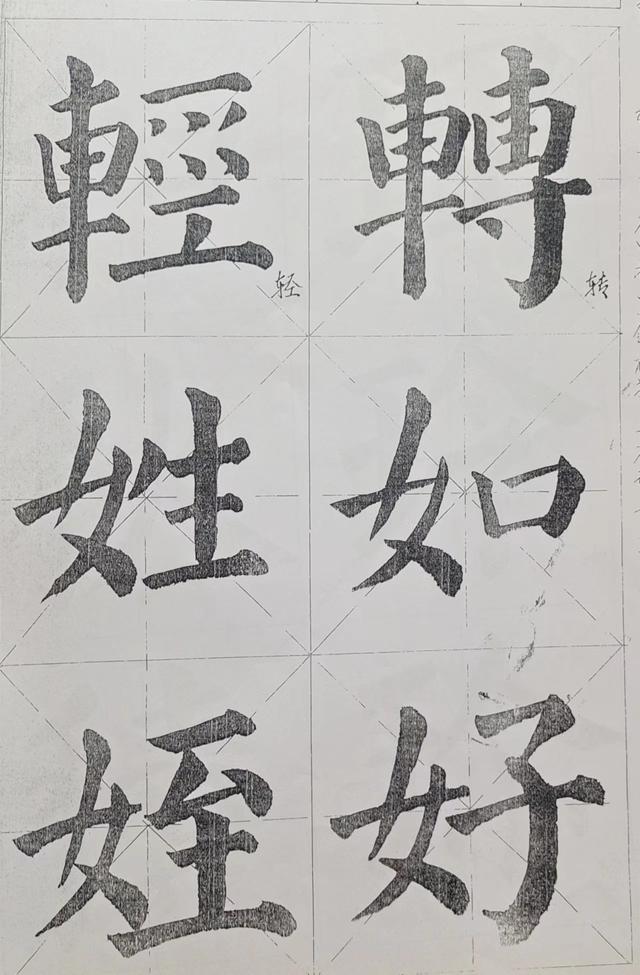 轉 转
如
好
輕 轻
姓
姪